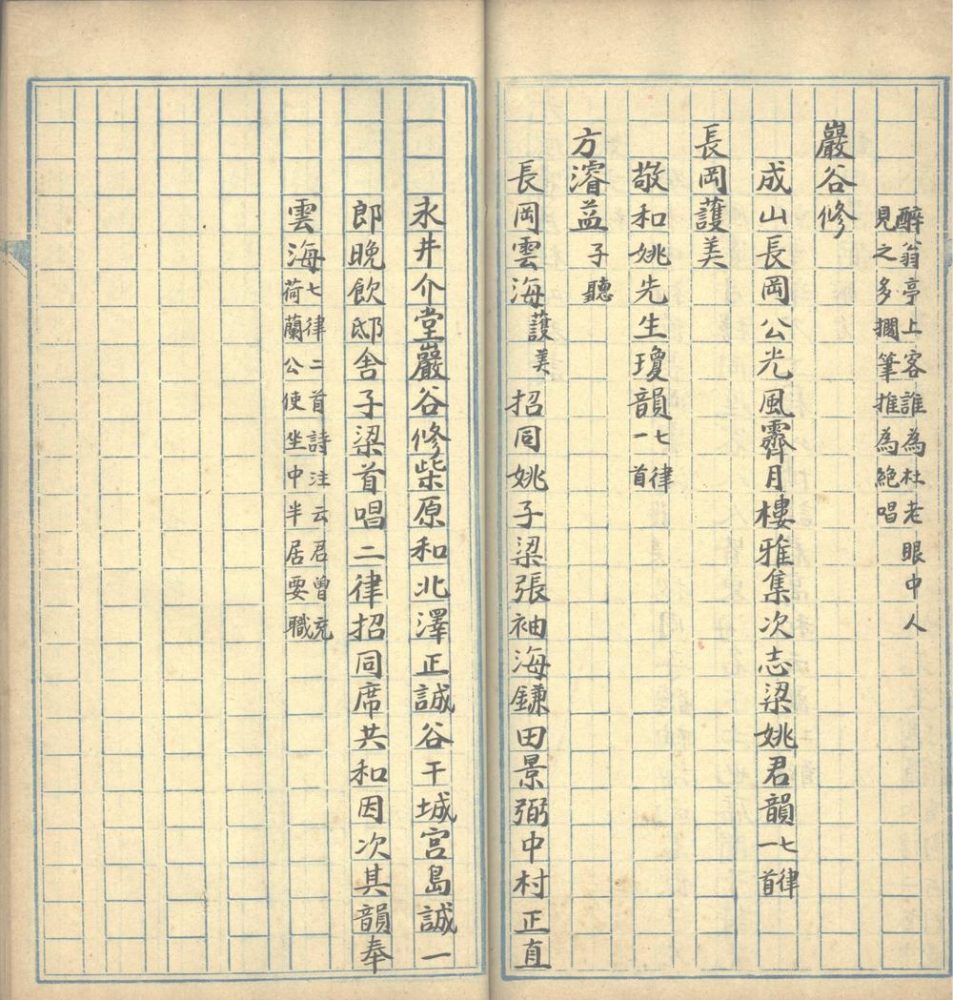 醉翁亭上客誰為杜老眼中人
見之多擱筆推為絕唱
巖谷修
成山長岡公光風霽月樓雅集次志梁姚君韻七律一首
長岡護美
敬和姚先生瓊韻七律一首
方濬益子聽
長岡雲海護美招同姚子梁張袖海鎌田景弼中村正直
永井介堂巖谷修柴原和北澤正誠谷干城宮島誠一
郎晚飲邸舍子梁首唱二律招同席共和因次其韻奉
雲海七律二首詩注云君曾充荷蘭公使坐中半居要職